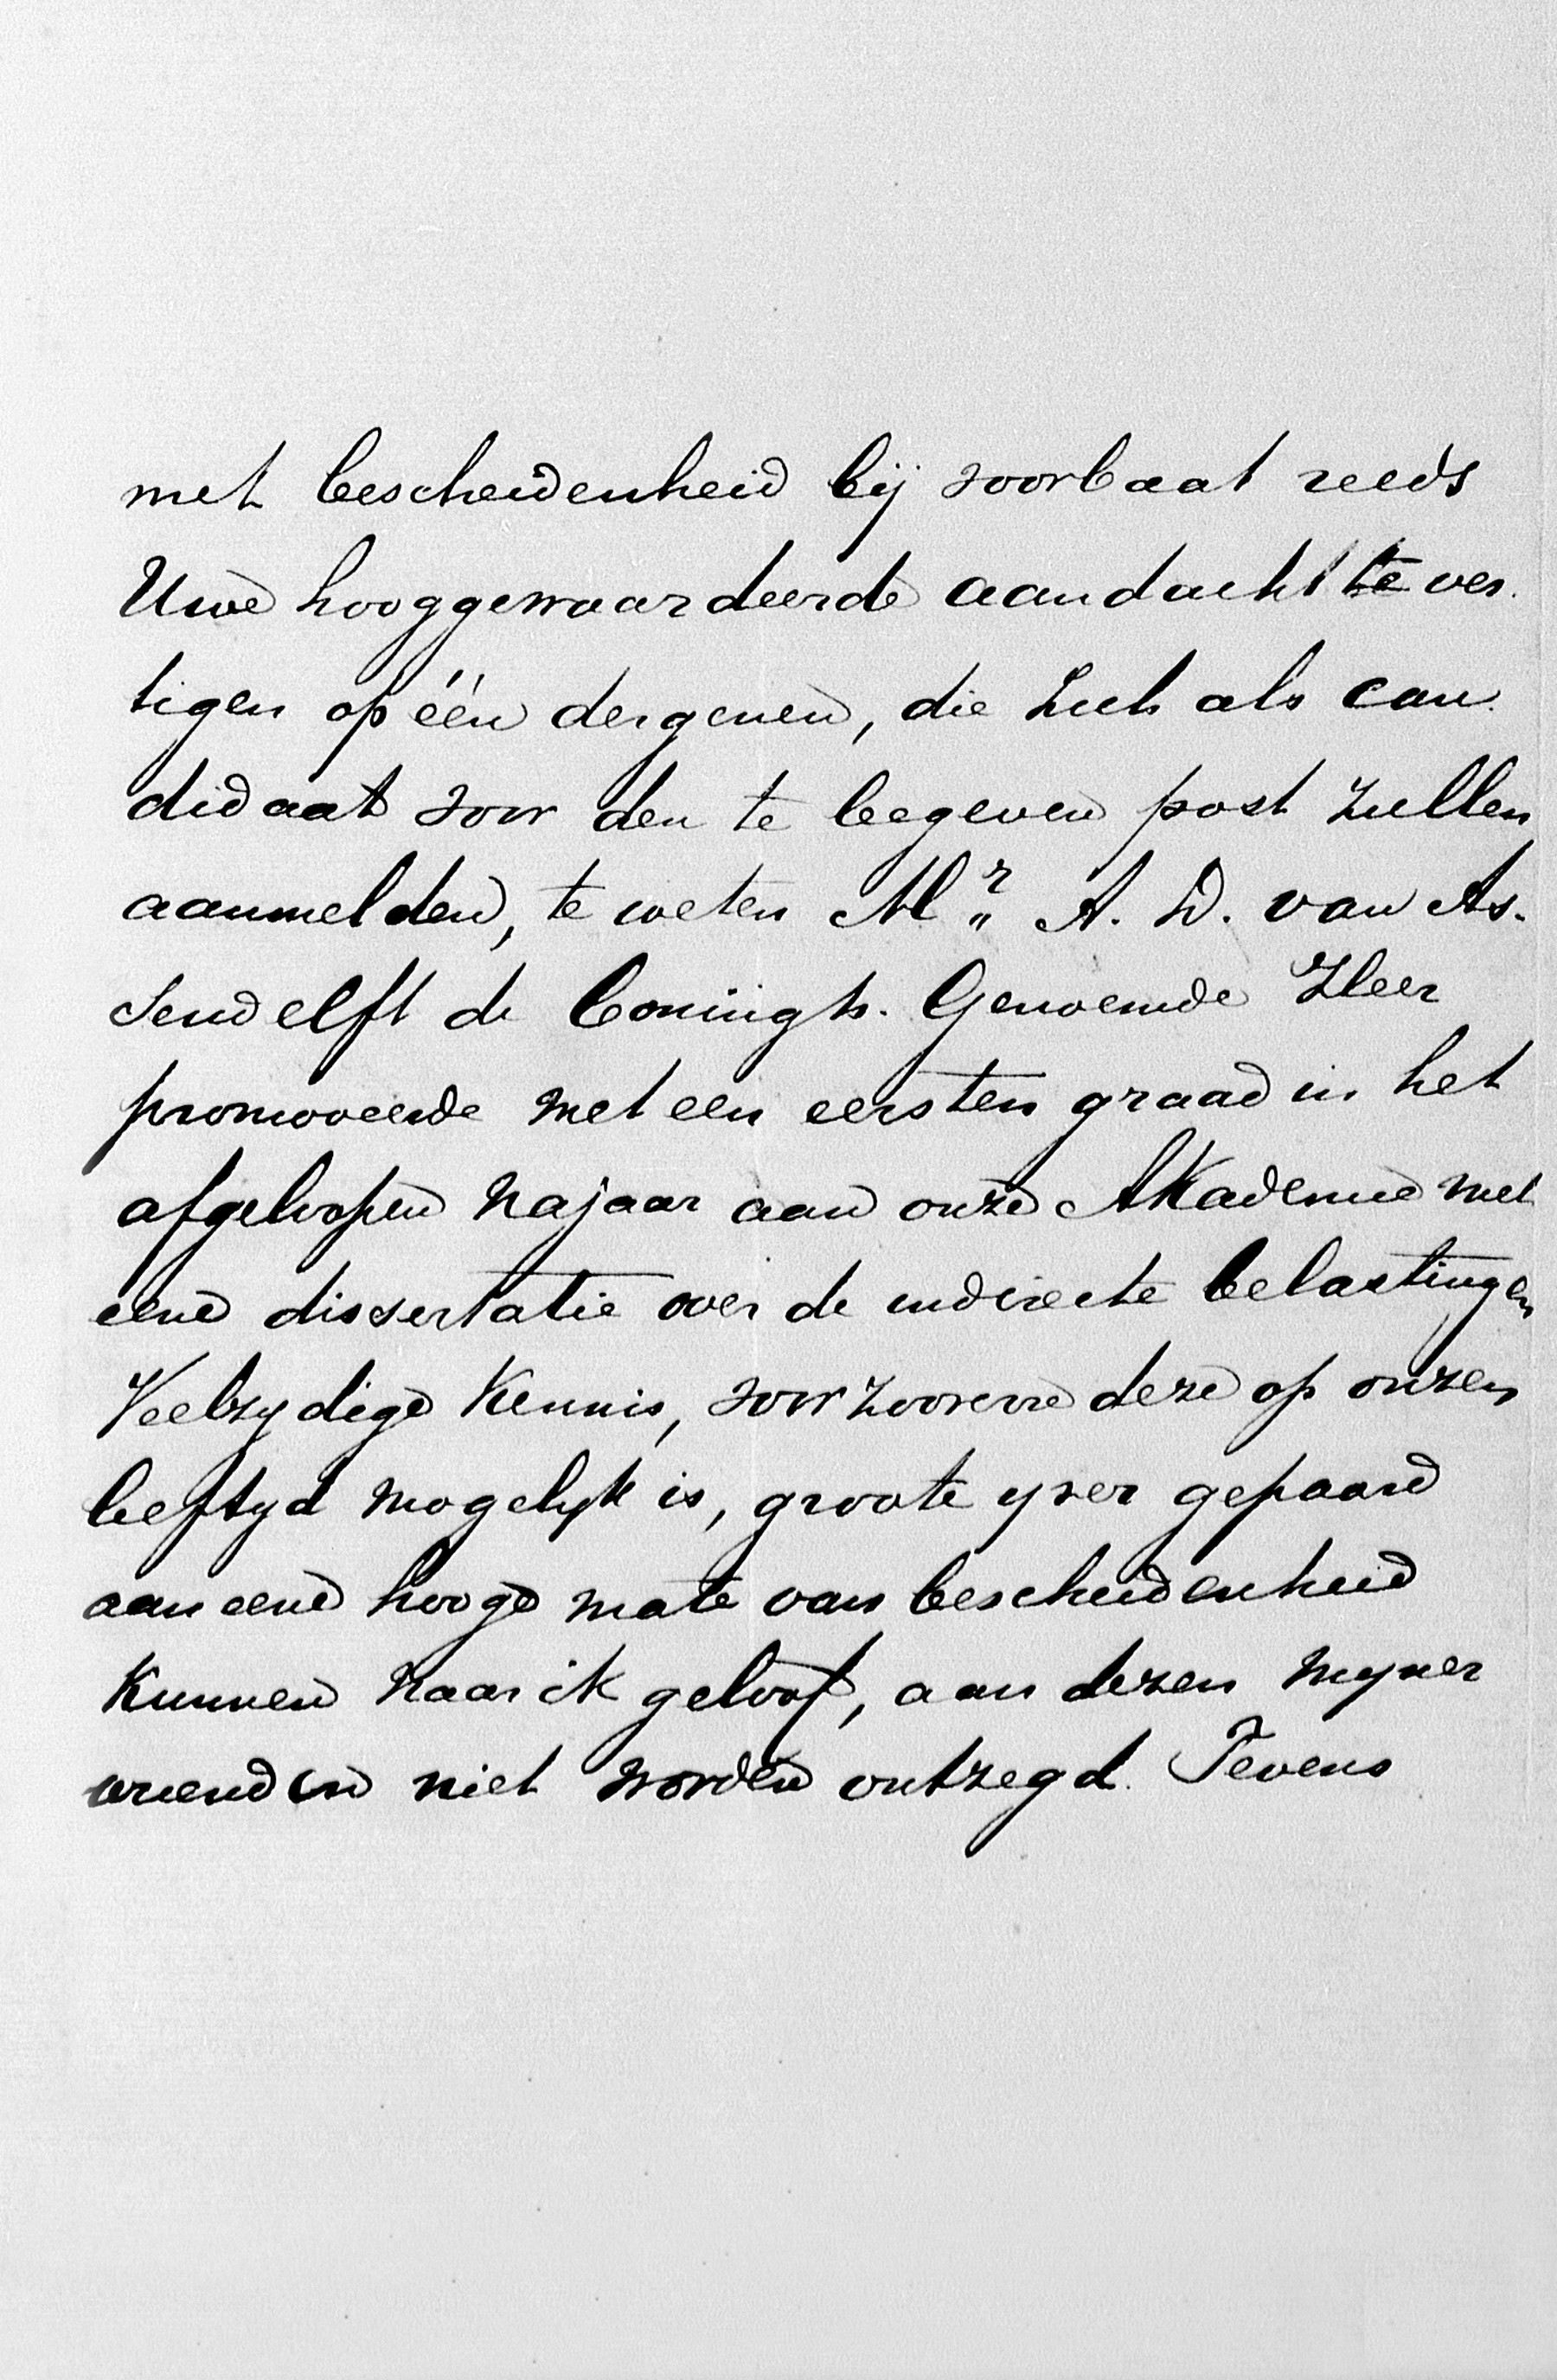 met bescheidenheid bij voorbaat reeds
Uwe hooggewaardeerde aandacht te ves-
tigen op één dergenen, die zich als can-
didaat voor den te begeven post zullen
aanmelden, te weten Mr. A. D. van As-
sendelft de Coningh. Genoemde Heer
promoveerde met een eersten graad in het
afgeloopen najaar aan onze Akademie met
eene dissertatie over de indirecte belastingen
Veelzydige kennis, voor zooverre deze op onzen
leeftyd mogelyk is, groote yver gepaard
aan eene hooge mate van bescheidenheid
kunnen naar ik geloof, aan dezen myner
vrienden niet worden ontzegd. Tevens